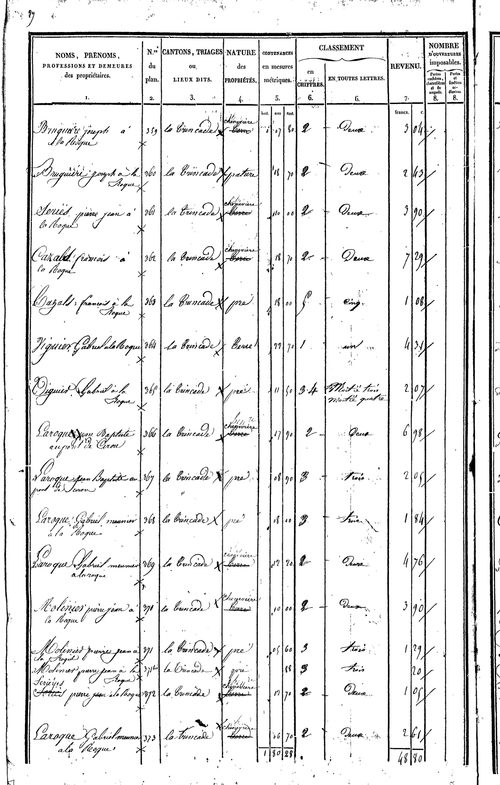 NOMS, PRÉNOMS,
PROFESSIONS ET DEMEURES
des propriétaires.
1.
N.os
du
plan.
2.
CANTONS, TRIAGES
ou
LIEUX DITS.
3.
NATURE
des
PROPRIÉTÉS.
4.
CONTENANCES
en mesures
métriques.
5.
CLASSEMENT
en
CHIFFRES.
6.
EN TOUTES LETTRES.
6.
REVENU.
7.
NOMBRE
D'OUVERTURES
imposables.
8.
8.
francs. c.
Bruguière joseph à 359 la Trincade chenevière 07 80 2 Deux 3 04
à la Roque
Bruguière joseph à la 360 la Trincade pature 18 70 2 Deux 2 43
Roque
Seriès pierre jean à 361 la Trincade chenevière 10 00 2 Deux 3 90
la Roque
Cazals francois à 362 la Trincade chenevière 18 70 2 Deux 7 29
la Roque
Cazals francois à la 363 la Trincade pré 18 00 5 cinq 1 08
Roque
Viguier Gabriel à la Roque 364 la Trincade terre 22 70 1 un 4 31
Viguier Gabriel à la 365 la Trincade pré 11 50 3-4 Moitié trois 2 07
Roque moitié quatre
Laroque jean Baptiste 366 la Trincade chenevière 17 90 2 Deux 6 98
au pont de Cirou
Laroque jean Baptiste au 367 la Trincade pré 08 90 3 trois 2 05
pont de Cirou
Laroque Gabriel meunier 368 la Trincade pré 08 00 3 trois 1 84
à la Roque
Laroque Gabriel meunier 369 la Trincade chenevière 12 20 2 Deux 4 76
à la roque
Molinier pierre jean à 370 la Trincade chenevière 10 00 2 Deux 3 90
la Roque
Molinier pierre jean à 371 la Trincade pré 05 60 3 trois 1 29
la Roque
Molinier pierre jean à la la Trincade pré 88 3 trois 20
Roque
Seriéyes
pierre jean à la Roque 372 la Trincade chenevière 2 Deux 1 05
Laroque Gabriel meunier 373 la Trincade chenevière 06 70 2 Deux 2 61
à la Roque
1 80 28 48 80